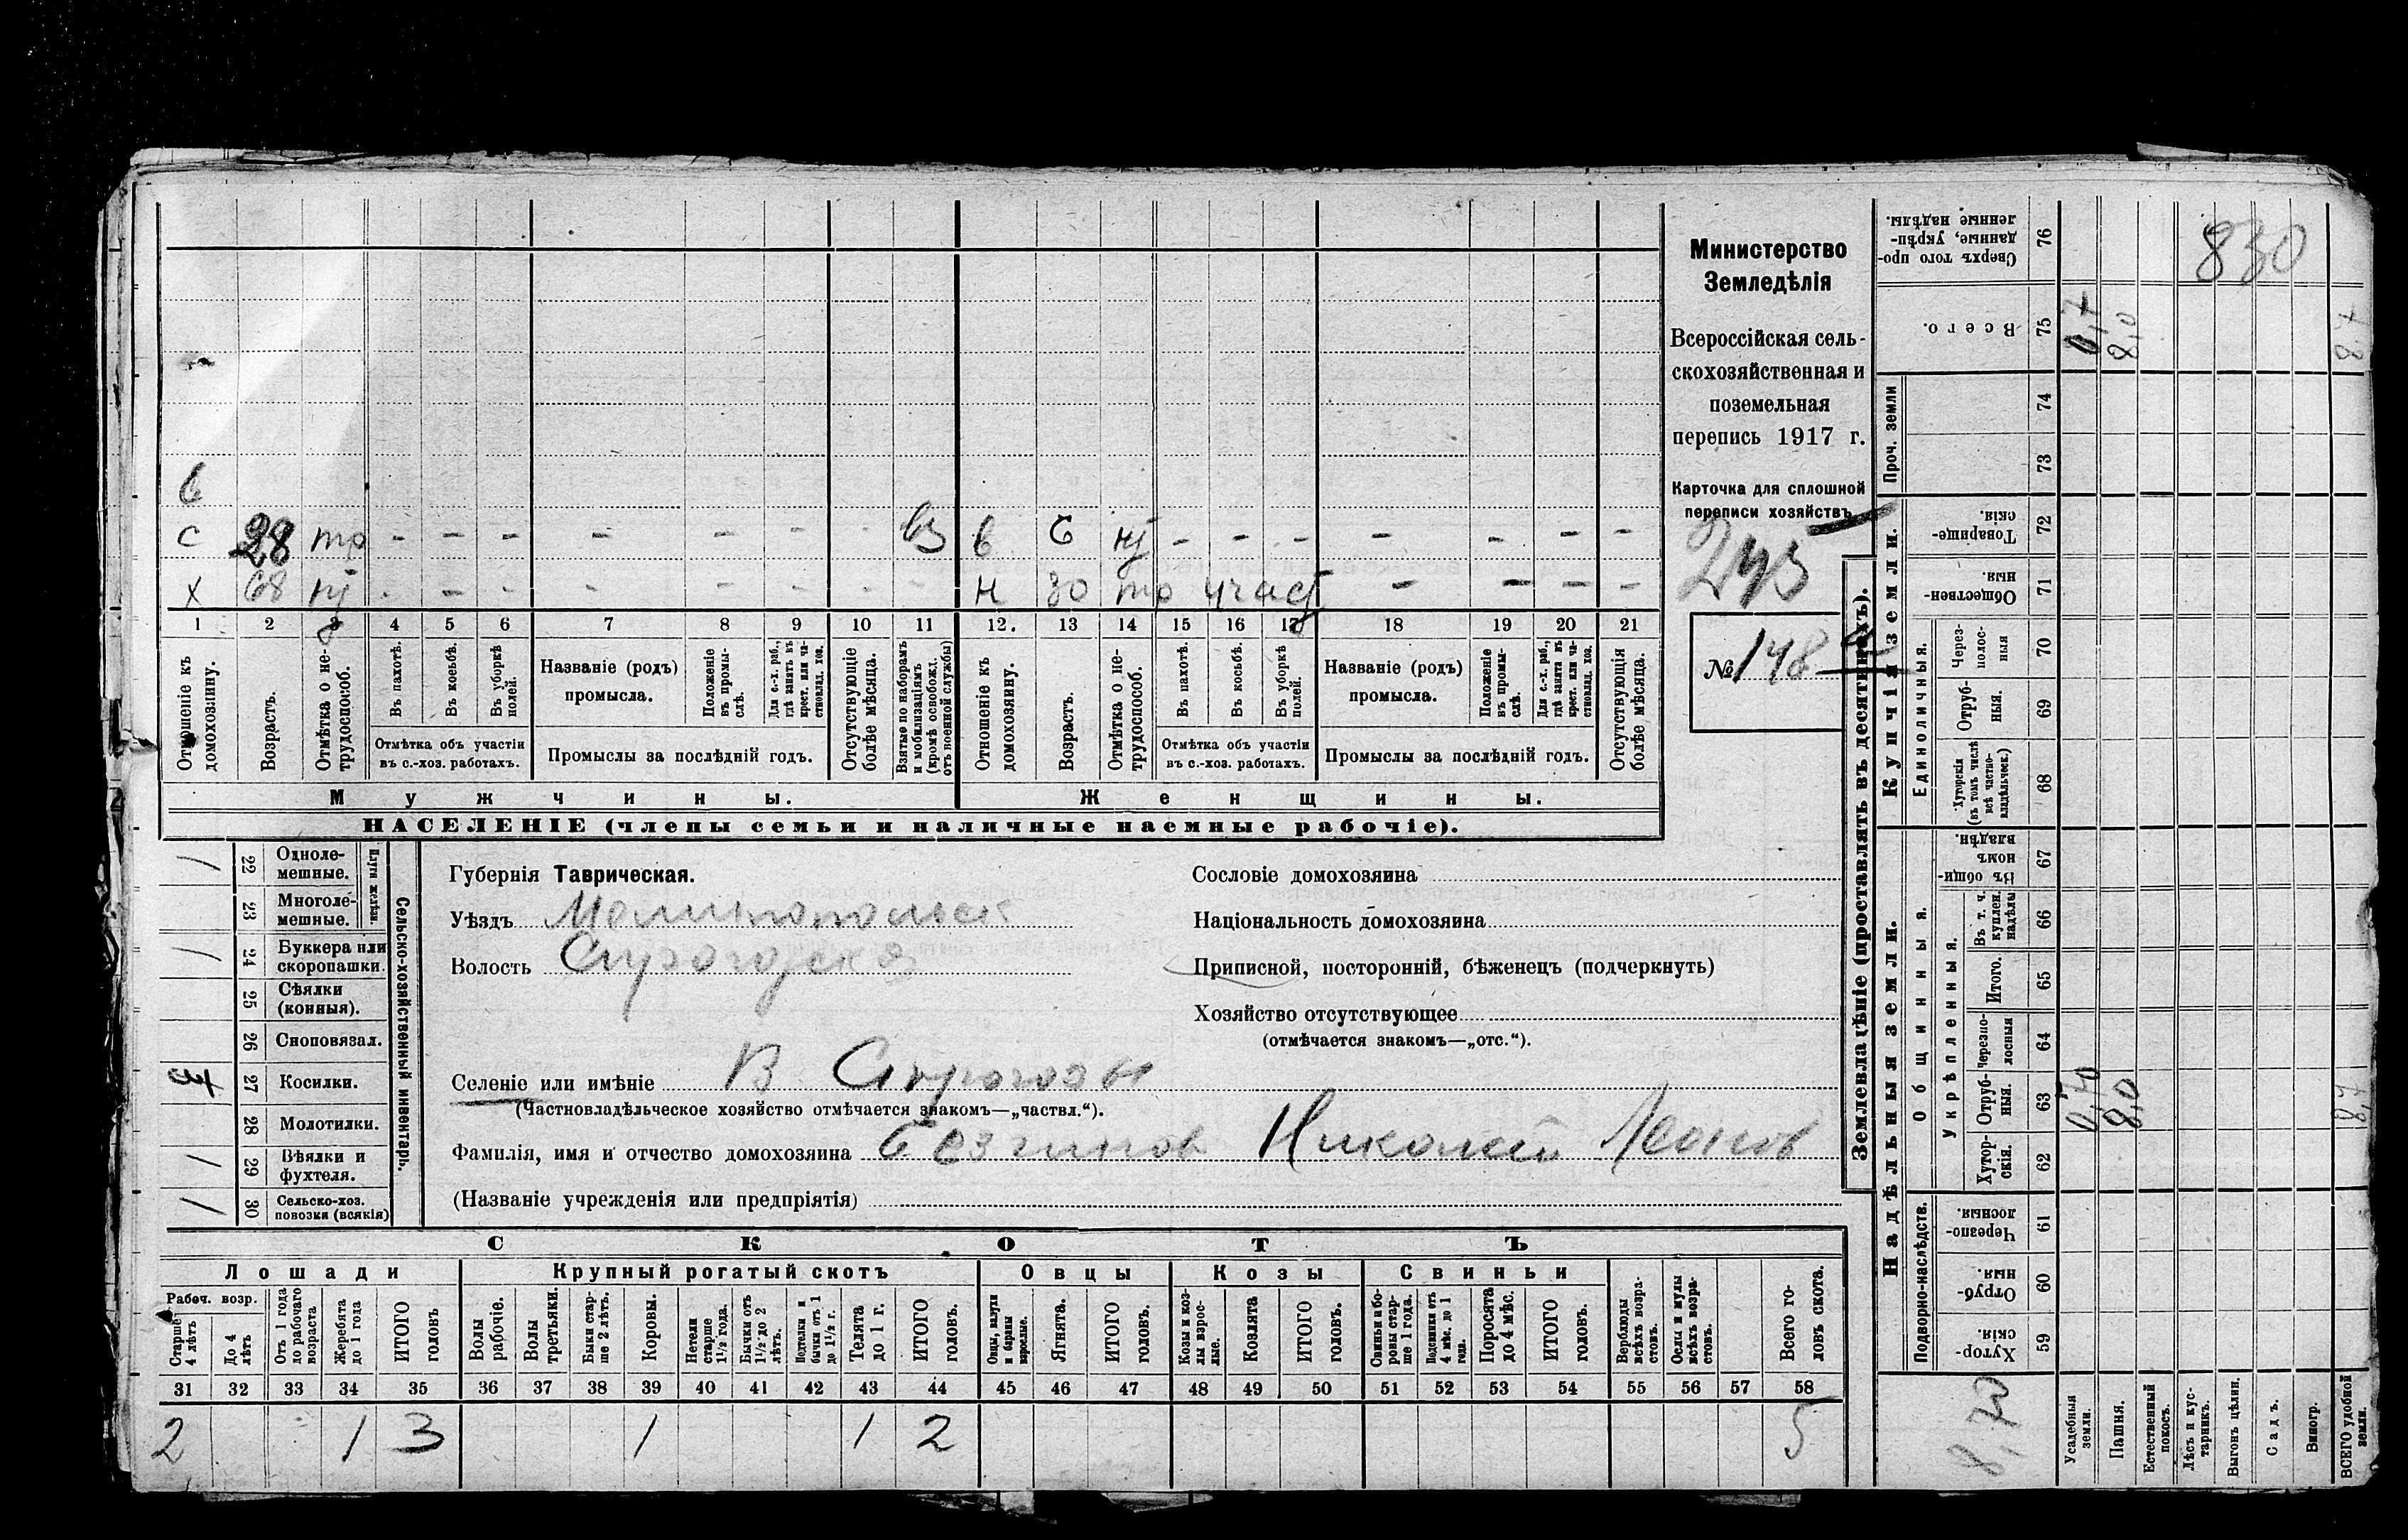 в
с 28 тр - - - - - - - вз в 6 нj - - - - - - -
х 68 нj - - - - - - - - н 30 тр участ - - - -
1 2 3 4 5 6 7 8 9 10 11 12. 13 14 15 16 17 18 19 20 21
Отношеніе къ домохозяину.
Возрастъ.
Отмѣтка о не-
трудоспособ.
Въ пахотѣ.
Въ косьбѣ.
Въ уборкѣ
полей.
Отмѣтка объ участіи
въ с.-хоз. работахъ.
Названіе (родъ)
промысла.
Положеніе
въ промы-
слѣ.
Для с.-х. раб.,
гдѣ занятъ въ
крест. или ча-
стновлад. хоз.
Промыслы за послѣдній годъ.
Отсутствующіе
болѣе мѣсяца.
Взятые по наборамъ
и мобилизаціямъ
(кромѣ освобожд.
отъ военной службы)
Отношеніе къ
домохозяину.
Возрастъ.
Отмѣтка о не-
трудоспособ.
Въ пахотѣ.
Въ косьбѣ.
Въ уборкѣ
полей.
Отмѣтка объ участіи
въ с.-хоз. работахъ.
Названіе (родъ)
промысла.
Положеніе
въ промы-
слѣ.
Для с.-х. раб.,
гдѣ занята въ
крест. или ча-
стновлад. хоз.
Промыслы за послѣдній годъ.
Отсутствующія
болѣе мѣсяца.
Мужчины.
Женщины.
НАСЕЛЕНІЕ (члены семьи и наличные наемные рабочіе).
Министерство
Земледѣлія
Всероссійская сель-
скохозяйственная и
поземельная
перепись 1917 г.
Карточка для сплошной
переписи хозяйствъ
245
№ 148
Плуги желѣзн.
1 22 Одноле-
мешные.
23 Многоле-
мешные.
1 24 Буккера или
скоропашки.
25 Сѣялки
(конныя).
26 Сноповязал.
27 Косилки.
28 Молотилки.
1 29 Вѣялки и
фухтеля.
1 30 Сельско-хоз.
повозки (всякія)
Сельско-хозяйственный инвентарь.
Губернія Таврическая.
Уѣздъ Мелитопольск
Волость Строгозская
Селеніе или имѣніе В Строгозы
(Частновладѣльческое хозяйство отмѣчается знакомъ—„частвл.“).
Фамилія, имя и отчество домохозяина Безгинов Николай Леонов
(Названіе учрежденія или предпріятія)
Сословіе домохозяина
Національность домохозяина
Приписной, посторонній, бѣженецъ (подчеркнуть)
Хозяйство отсутствующее
(отмѣчается знакомъ—„отс.“).
СКОТЪ
Лошади
Рабоч. возр.
Старше
4 лѣтъ
До 4
лѣтъ
Отъ 1 года
до рабочаго
возраста
Жеребята
до 1 года
ИТОГО
головъ
Крупный рогатый скотъ
Волы
рабочіе.
Волы
третьяки.
Быки стар-
ше 2 лѣтъ.
Коровы.
Нетели
старше
1½ года.
Бычки отъ
1½ до 2
лѣтъ.
Подтелки и
бычки отъ 1
до 1½ г.
Телята
до 1 г.
ИТОГО
головъ.
Овцы
Овцы, валухи
и бараны
взрослые.
Ягнята.
ИТОГО
головъ.
Козы
Козы и коз-
лы взрос-
лые.
Козлята
ИТОГО
головъ.
Свиньи
Свиньи и бо-
ровы стар-
ше 1 года.
Подсвинки отъ
4 мѣс. до 1
года.
Поросята
до 4 мѣс.
ИТОГО
головъ.
Верблюды
всѣхъ возра-
стовъ.
Ослы и мулы
всѣхъ возра-
стовъ.
Всего го-
ловъ скота.
31 32 33 34 35 36 37 38 39 40 41 42 43 44 45 46 47 48 49 50 51 52 53 54 55 56 57 58
2 1 3 1 1 2 5
Землевладѣніе (проставлять въ десятинахъ).
Купчія земли.
Надѣльныя земли.
Сверхъ того про-
данные, укрѣп-
ленные надѣлы.
76
830
Всего.
75 0,7 8,0 8,7
Проч. земли
74
73
Товарище-
скія.
72
Обществен-
ныя
71
Единоличныя.
Через-
полос-
ныя
70
Отруб-
ныя.
69
Хуторскія
(въ томъ числѣ
всѣ частно-
владѣльческ.)
68
Общинныя.
Въ общи-
номъ
владѣн.
67
Укрѣпленныя.
Въ т. ч.
куплен.
надѣлы
66
Итого.
65
Черезпо-
лосныя
64
Отруб-
ныя.
63 0,70 8,0 8,7
Хутор-
скія.
62
Подворно-наслѣдств.
Черезпо-
лосныя.
61
Отруб-
ныя.
60
Хутор-
скія.
59
8,70
Усадебныя
земли.
Пашня.
Естественный
покосъ.
Лѣсъ и кус-
тарникъ.
Выгонъ цѣлин.
Садъ.
Виногр.
ВСЕГО удобной
земли.